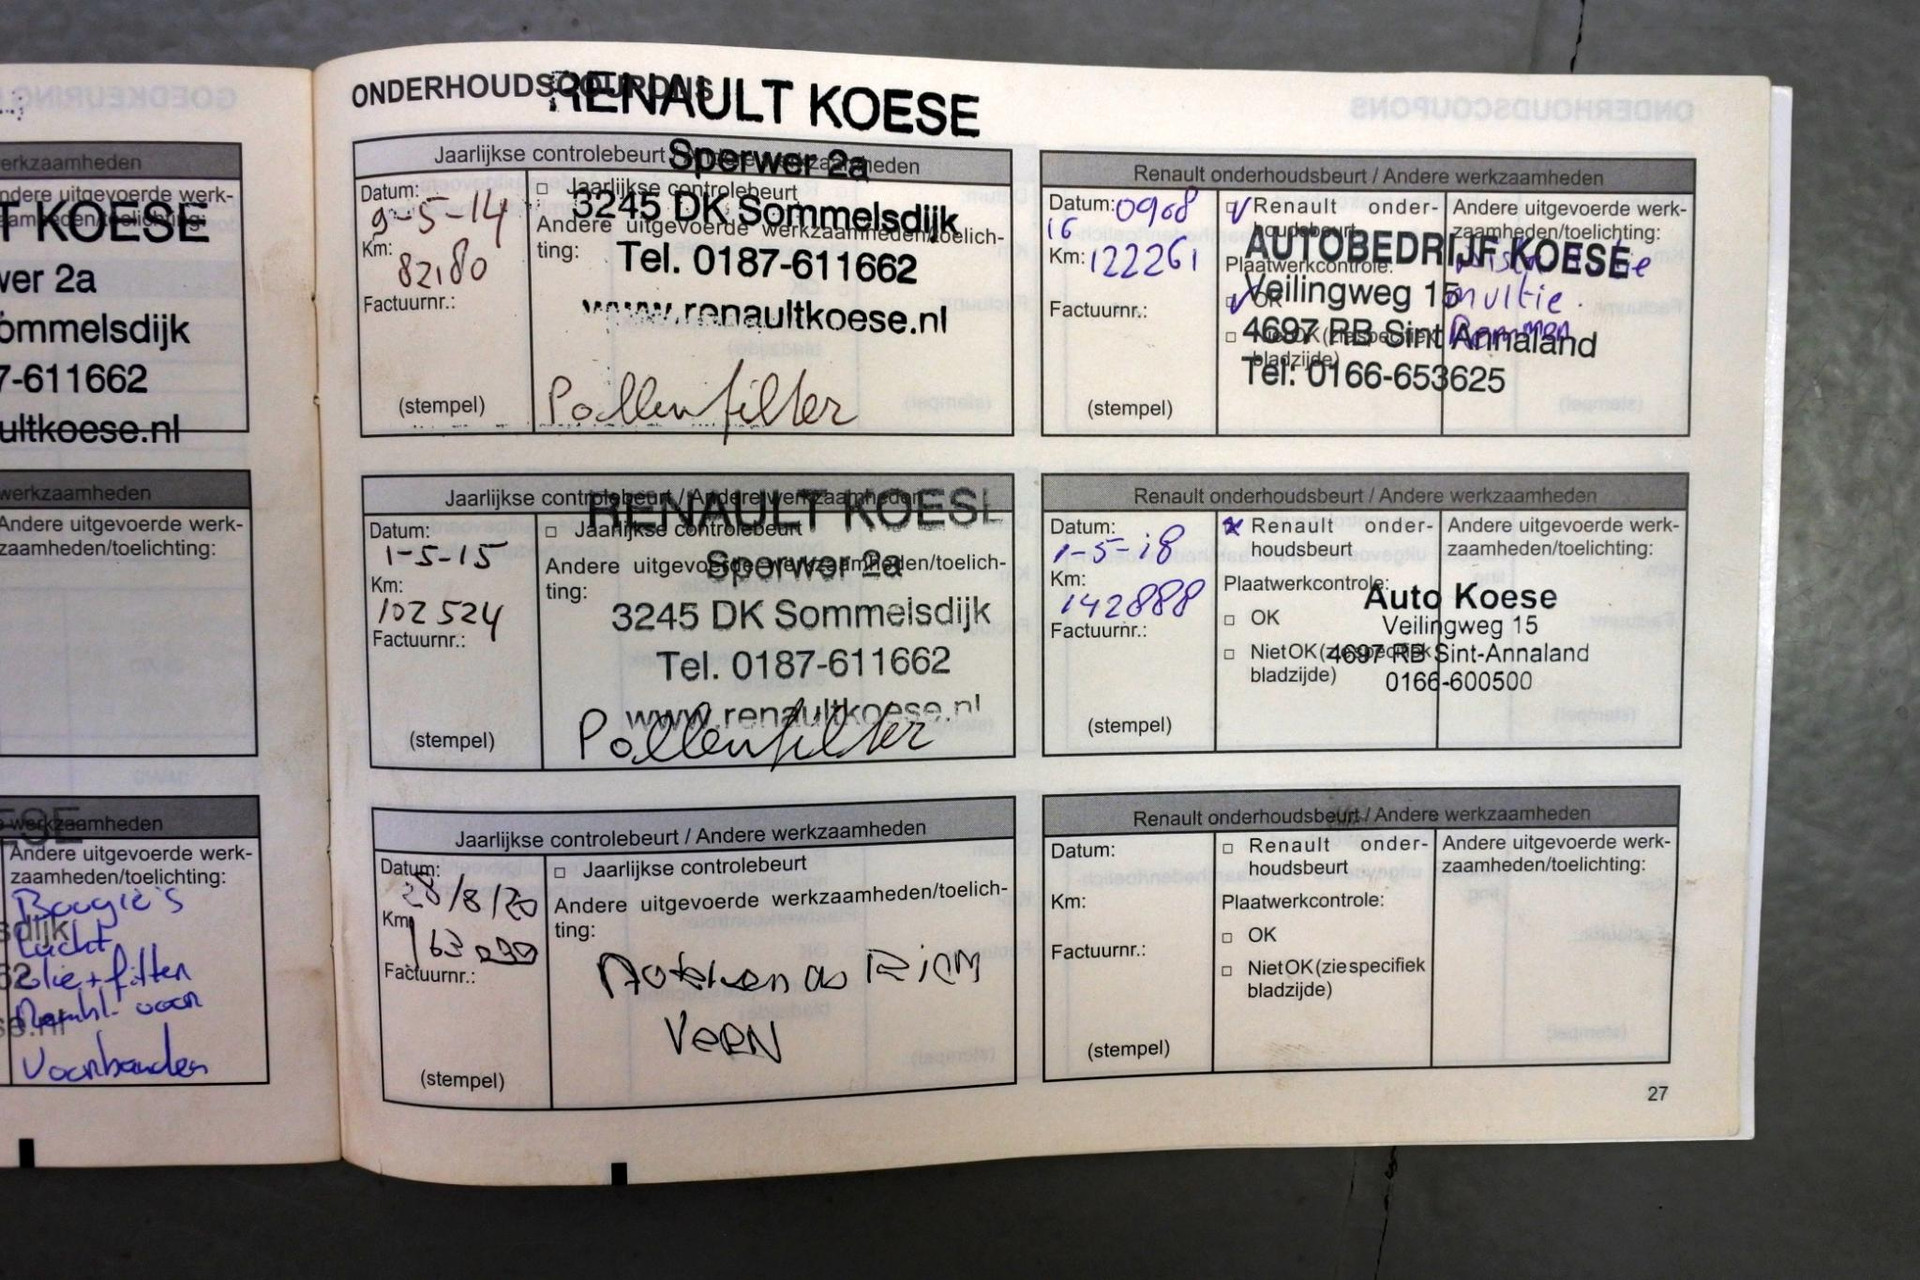 erkzaamheden
ndere uitgevoerde werk-
zaamheden/toelichting:
T KOESE
wer 2a
ommelsdijk
7-611662
ultkoese.nl
werkzaamheden
Andere uitgevoerde werk-
zaamheden/toelichting:
werkzaamheden
Andere uitgevoerde werk-
zaamheden/toelichting:
Bougie's
Lucht
olie + filter
voor
Voorhanden
ONDERHOUDSCOUPONS
RENAULT KOESE
Sperwer 2a
3245 DK Sommelsdijk
Tel. 0187-611662
www.renaultkoese.nl
Jaarlijkse controlebeurt / Andere werkzaamheden
Datum:
9-5-14
Km:
82180
Factuurnr.:
(stempel)
□ Jaarlijkse controlebeurt
Andere uitgevoerde werkzaamheden/toelich-
ting:
Pollenfilter
Jaarlijkse controlebeurt / Andere werkzaamheden
Datum:
1-5-15
Km:
102524
Factuurnr.:
(stempel)
□ Jaarlijkse controlebeurt
Andere uitgevoerde werkzaamheden/toelich-
ting:
RENAULT KOESE
Sperwer 2a
3245 DK Sommelsdijk
Tel. 0187-611662
www.renaultkoese.nl
Pollenfilter
Jaarlijkse controlebeurt / Andere werkzaamheden
Datum:
28/8/20
Km
163
Factuurnr.:
(stempel)
□ Jaarlijkse controlebeurt
Andere uitgevoerde werkzaamheden/toelich-
ting:
Renault onderhoudsbeurt / Andere werkzaamheden
Datum: 0908
16
Km: 122261
Factuurnr.:
(stempel)
Renault onder-
houdsbeurt
Plaatwerkcontrole:
OK
□ Niet OK (zie specifiek
bladzijde)
Andere uitgevoerde werk-
zaamheden/toelichting:
AUTOBEDRIJF KOESE
Veilingweg 15
4697 RB Sint Annaland
Tel: 0166-653625
Renault onderhoudsbeurt / Andere werkzaamheden
Datum:
1-5-18
Km:
142888
Factuurnr.:
(stempel)
Renault onder-
houdsbeurt
Plaatwerkcontrole:
□ OK
□ Niet OK (zie specifiek
bladzijde)
Andere uitgevoerde werk-
zaamheden/toelichting:
Auto Koese
Veilingweg 15
4697 RB Sint-Annaland
0166-600500
Renault onderhoudsbeurt / Andere werkzaamheden
Datum:
Km:
Factuurnr.:
(stempel)
□ Renault onder-
houdsbeurt
Plaatwerkcontrole:
□ OK
□ Niet OK (zie specifiek
bladzijde)
Andere uitgevoerde werk-
zaamheden/toelichting:
27